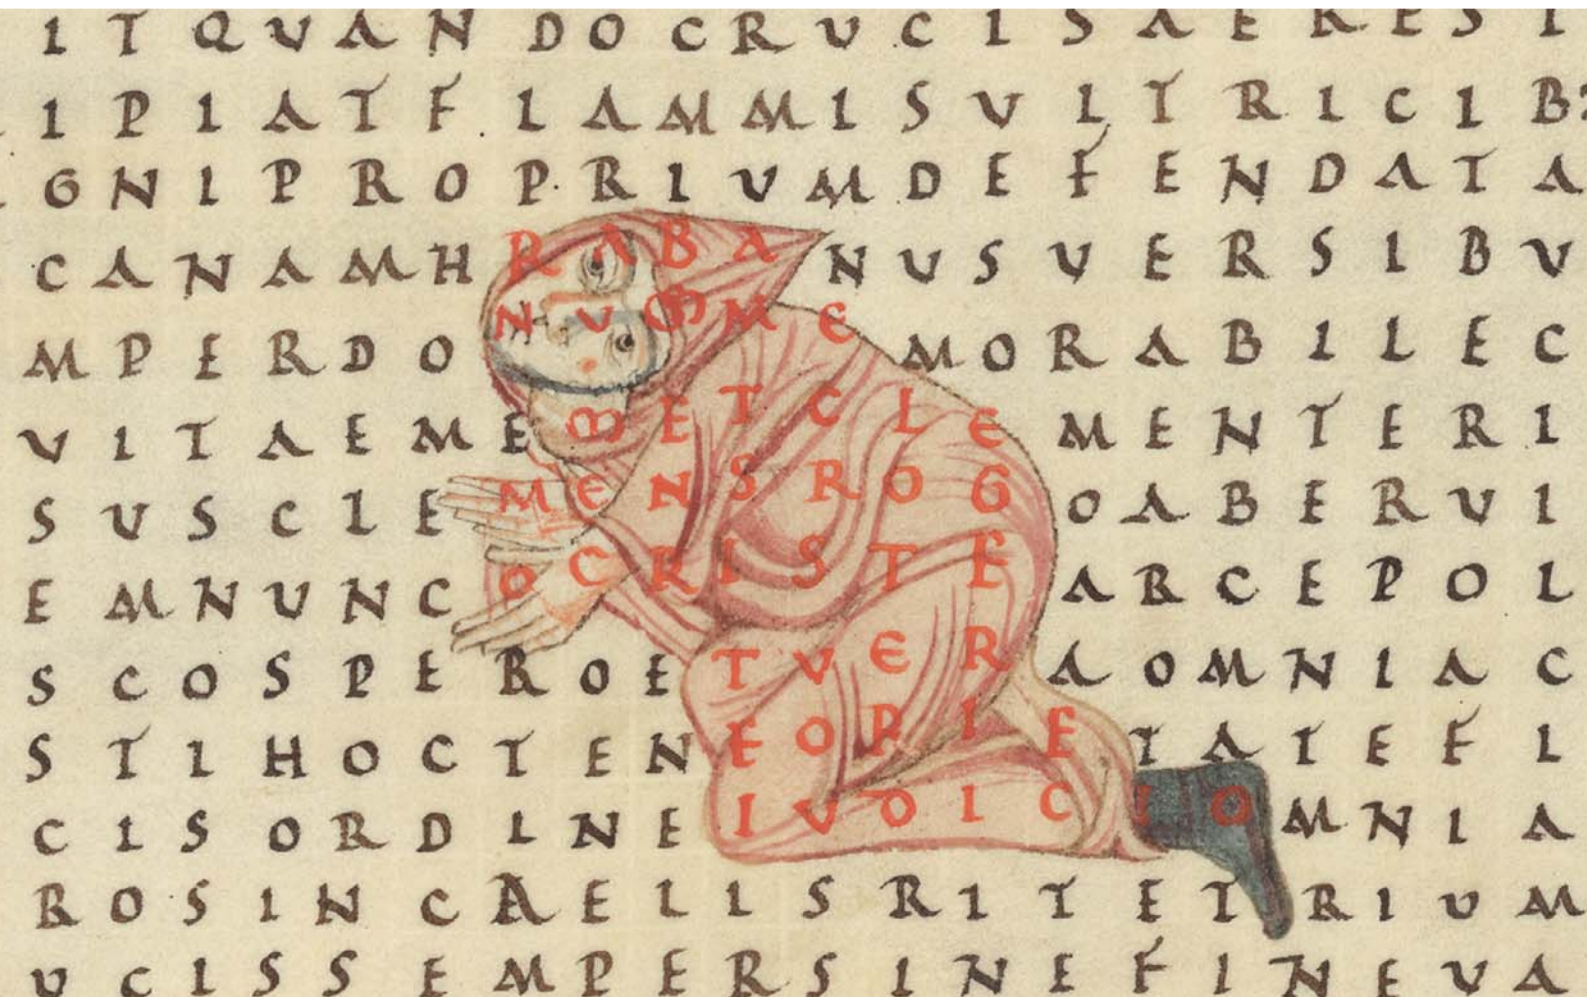 I T Q U A N D O C R U C I S A E R E S I
I P I A T F L A M M I S U L T R I C I B
G N I P R O P R I U M D E F E N D A T A
C A N A M H R A B A N U S U E R S I B U
N U M M E
M P E R D O M O R A B I L E C
U I T A E M E M E T C L E M E N T E R I
S U S C I E M E N S R O G O A B E R U I
E M N U N C O C R I S T E A R C E P O L
S C O S P E R O E T U E R A O M N I A C
S T I H O C T E N E O P I E T A T E F L
C I S O R D I N E I U D I C I O M N I A
R O S I N C A E L I S R I T E T R I U M
U C I S S E M P E R S I N E F I N E U A